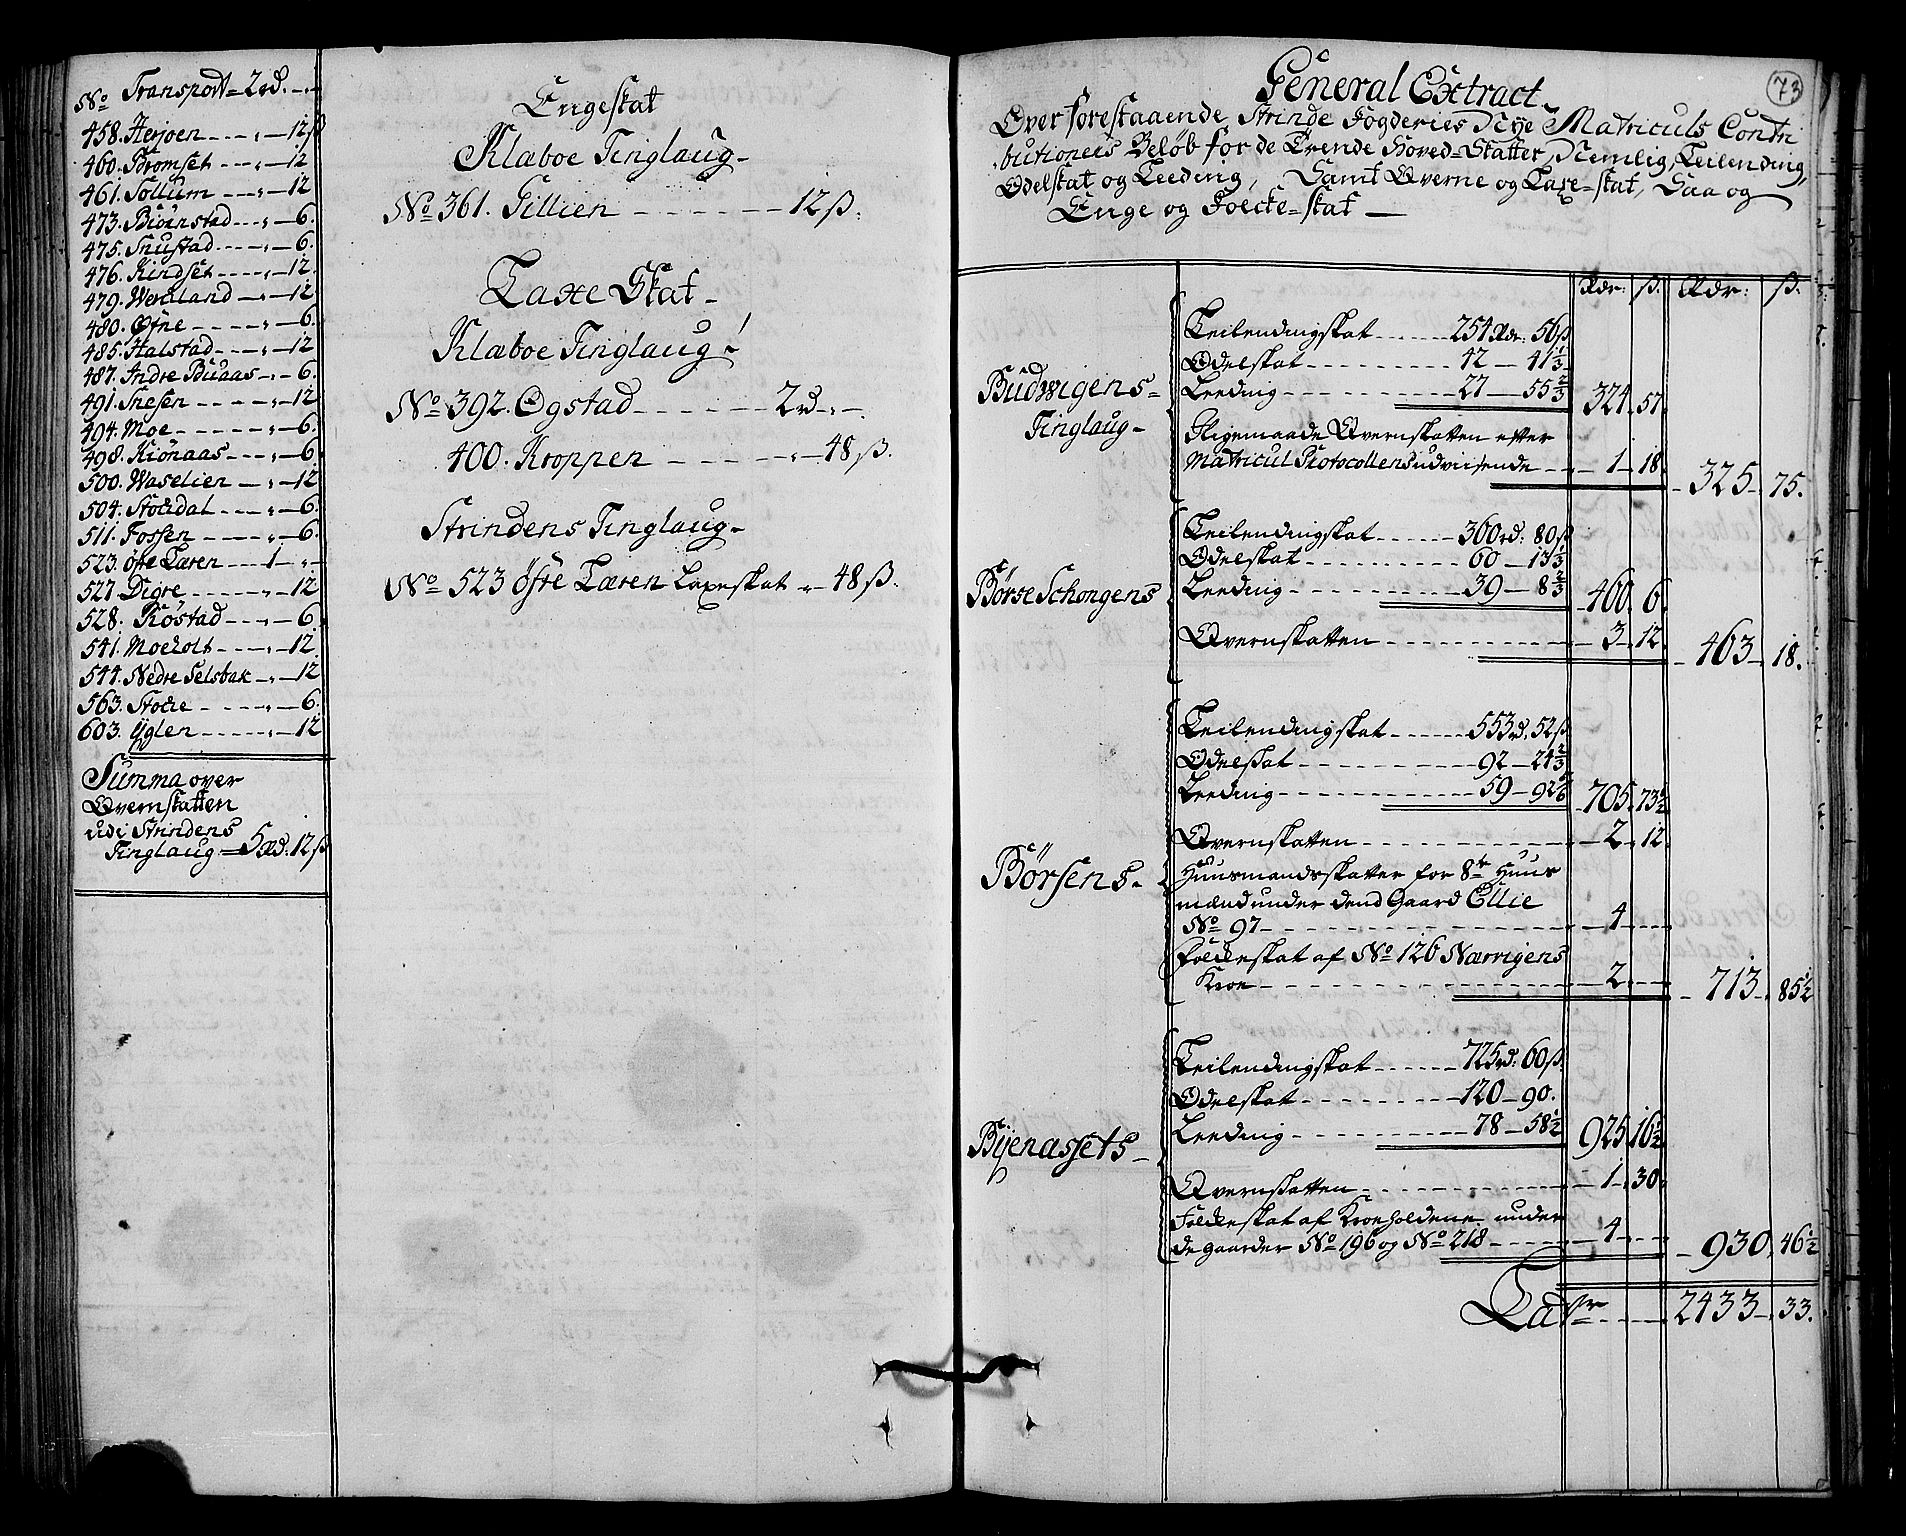 No Transport = 2rd. - „ -
458. Herjoen - - - „ - 12 ß
460. Bromset - - - „ - 12
461. Sollum - - - - „ - 12
473. Biönstad - - - „ - 6.
475. Snustad - - - - „ - 6.
476. Kindset - - - - „ - 12.
479. Werkland - - „ - 12
480. Ofne - - - - - „ - 6.
485. Halstad - - - „ - 12
487. Indre Buaas - „ - 6.
491. Snesen - - - - „ - 12
494. Moe - - - - - - „ - 6.
498. Kiönaas - - - „ - 6
500. Waselien - - „ - 12
504. Stokdal - - - „ - 6.
511. Fossen - - - - „ - 6.
523. Öfre Læren - - - 1 - „ -
527. Digre - - - - - „ - 12
528. Röstad - - - „ - 6.
541. Moeholt - - - „ - 12.
544. Nedre Selsbak - „ - 12
563. Stocke - - - - - „ - 6.
603. Ÿglen - - - - - „ - 12
Summa over
Qvernskatten
udi Strindens
Tinglaug - 5 rd. 12 ß
Engeskat
Klæboe Tinglaug -
No 361. Tillien - - - - - - - 12 ß.
Taxe Skat -
Klæboe Tinglaug -
No 392. Ogstad - - - - - - 2 rd „ -.
400. Kroppen - - - - - - „ - 48 ß.
Strindens Tinglaug -
No 523 Öfre Læren Laxeskat „ - 48 ß.
73
General Extract
Over forestaaende Strinde Fogderies Nye Matriculs Contri
butioners Beløb for de Trende Hoved-Skatter, Nemlig, Leilending,
Odelskat og Leeding, Samt Qverne og Laxe-skat, Saa og
Enge og Foecke-skat -
Rdr: ß. Rdr: ß.
Leilendingskat - - - - - 254 Rdr: 56 ß
Odelskat - - - - - - - - - 42 - 41 1/3
Budwigens - Leeding - - - - - - - - - 27 - 55 2/3 324. 57.
Tinglaug - Ligemaade Qvernskatten efter
Matricul Protocollens udviisende - - - 1 - 18. - 325 - 75.
Leilendingskat - - - - - - 360 rd: 80 ß
Odelskat - - - - - - - - - - 60 - 13 1/3
Börse Schongens Leeding - - - - - - - - - - 39 - 8 2/3 460. 6.
Qvernskatten - - - - - - - - - - - 3 - 12. - 463 - 18.
Leilendingskat - - - - - 553 rd. 52 ß
Odelskat - - - - - - - - - 92 - 24 2/3
Leeding - - - - - - - - - - 59 - 92 5/6 705. 73 1/2
Qvernskatten - - - - - - - - - - - 2 - 12.
Börsens - Huusmandsskatter for 8te Huus
mænd under dend Gaard Ellie
No 97 - - - - - - - - - - - - - - - - - 4 - - -
Fockeskat af No 126 Nærvigens
Kroe - - - - - - - - - - - - - - - - 2 - - - - 713 - 85 1/2
Leilendingskat - - - - - 725 rd: 60 ß.
Odelskat - - - - - - - - - 120 - 90.
Bÿenassets - Leeding - - - - - - - - - 78 - 58 1/2 925. 16 1/2
Qvernskatten - - - - - - - - - - - 1 - 30.
Fockeskat af Kroeholdene under
de gaarder No 196 og No 218 - - - - - 4 - - - - 930. 46 1/2
Latr - - - - 2433 - 33.